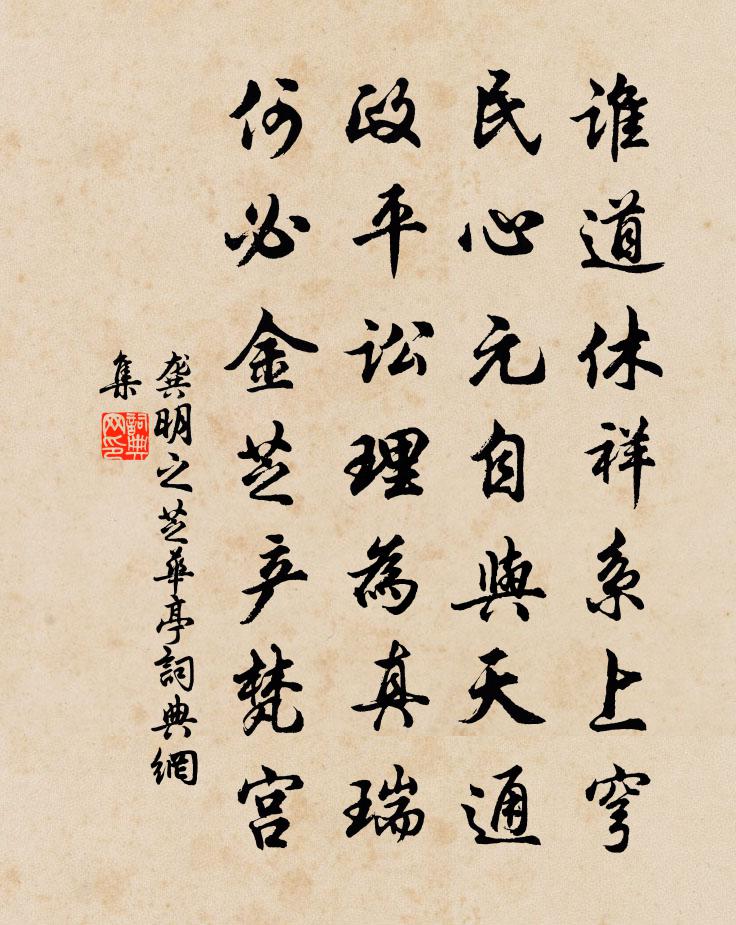 谁道休祥系上穹
民心元自與天通
政平訟理為真瑞
何必金芝产梵宫
龚明之芝華亭詞典網
集
詞典网印